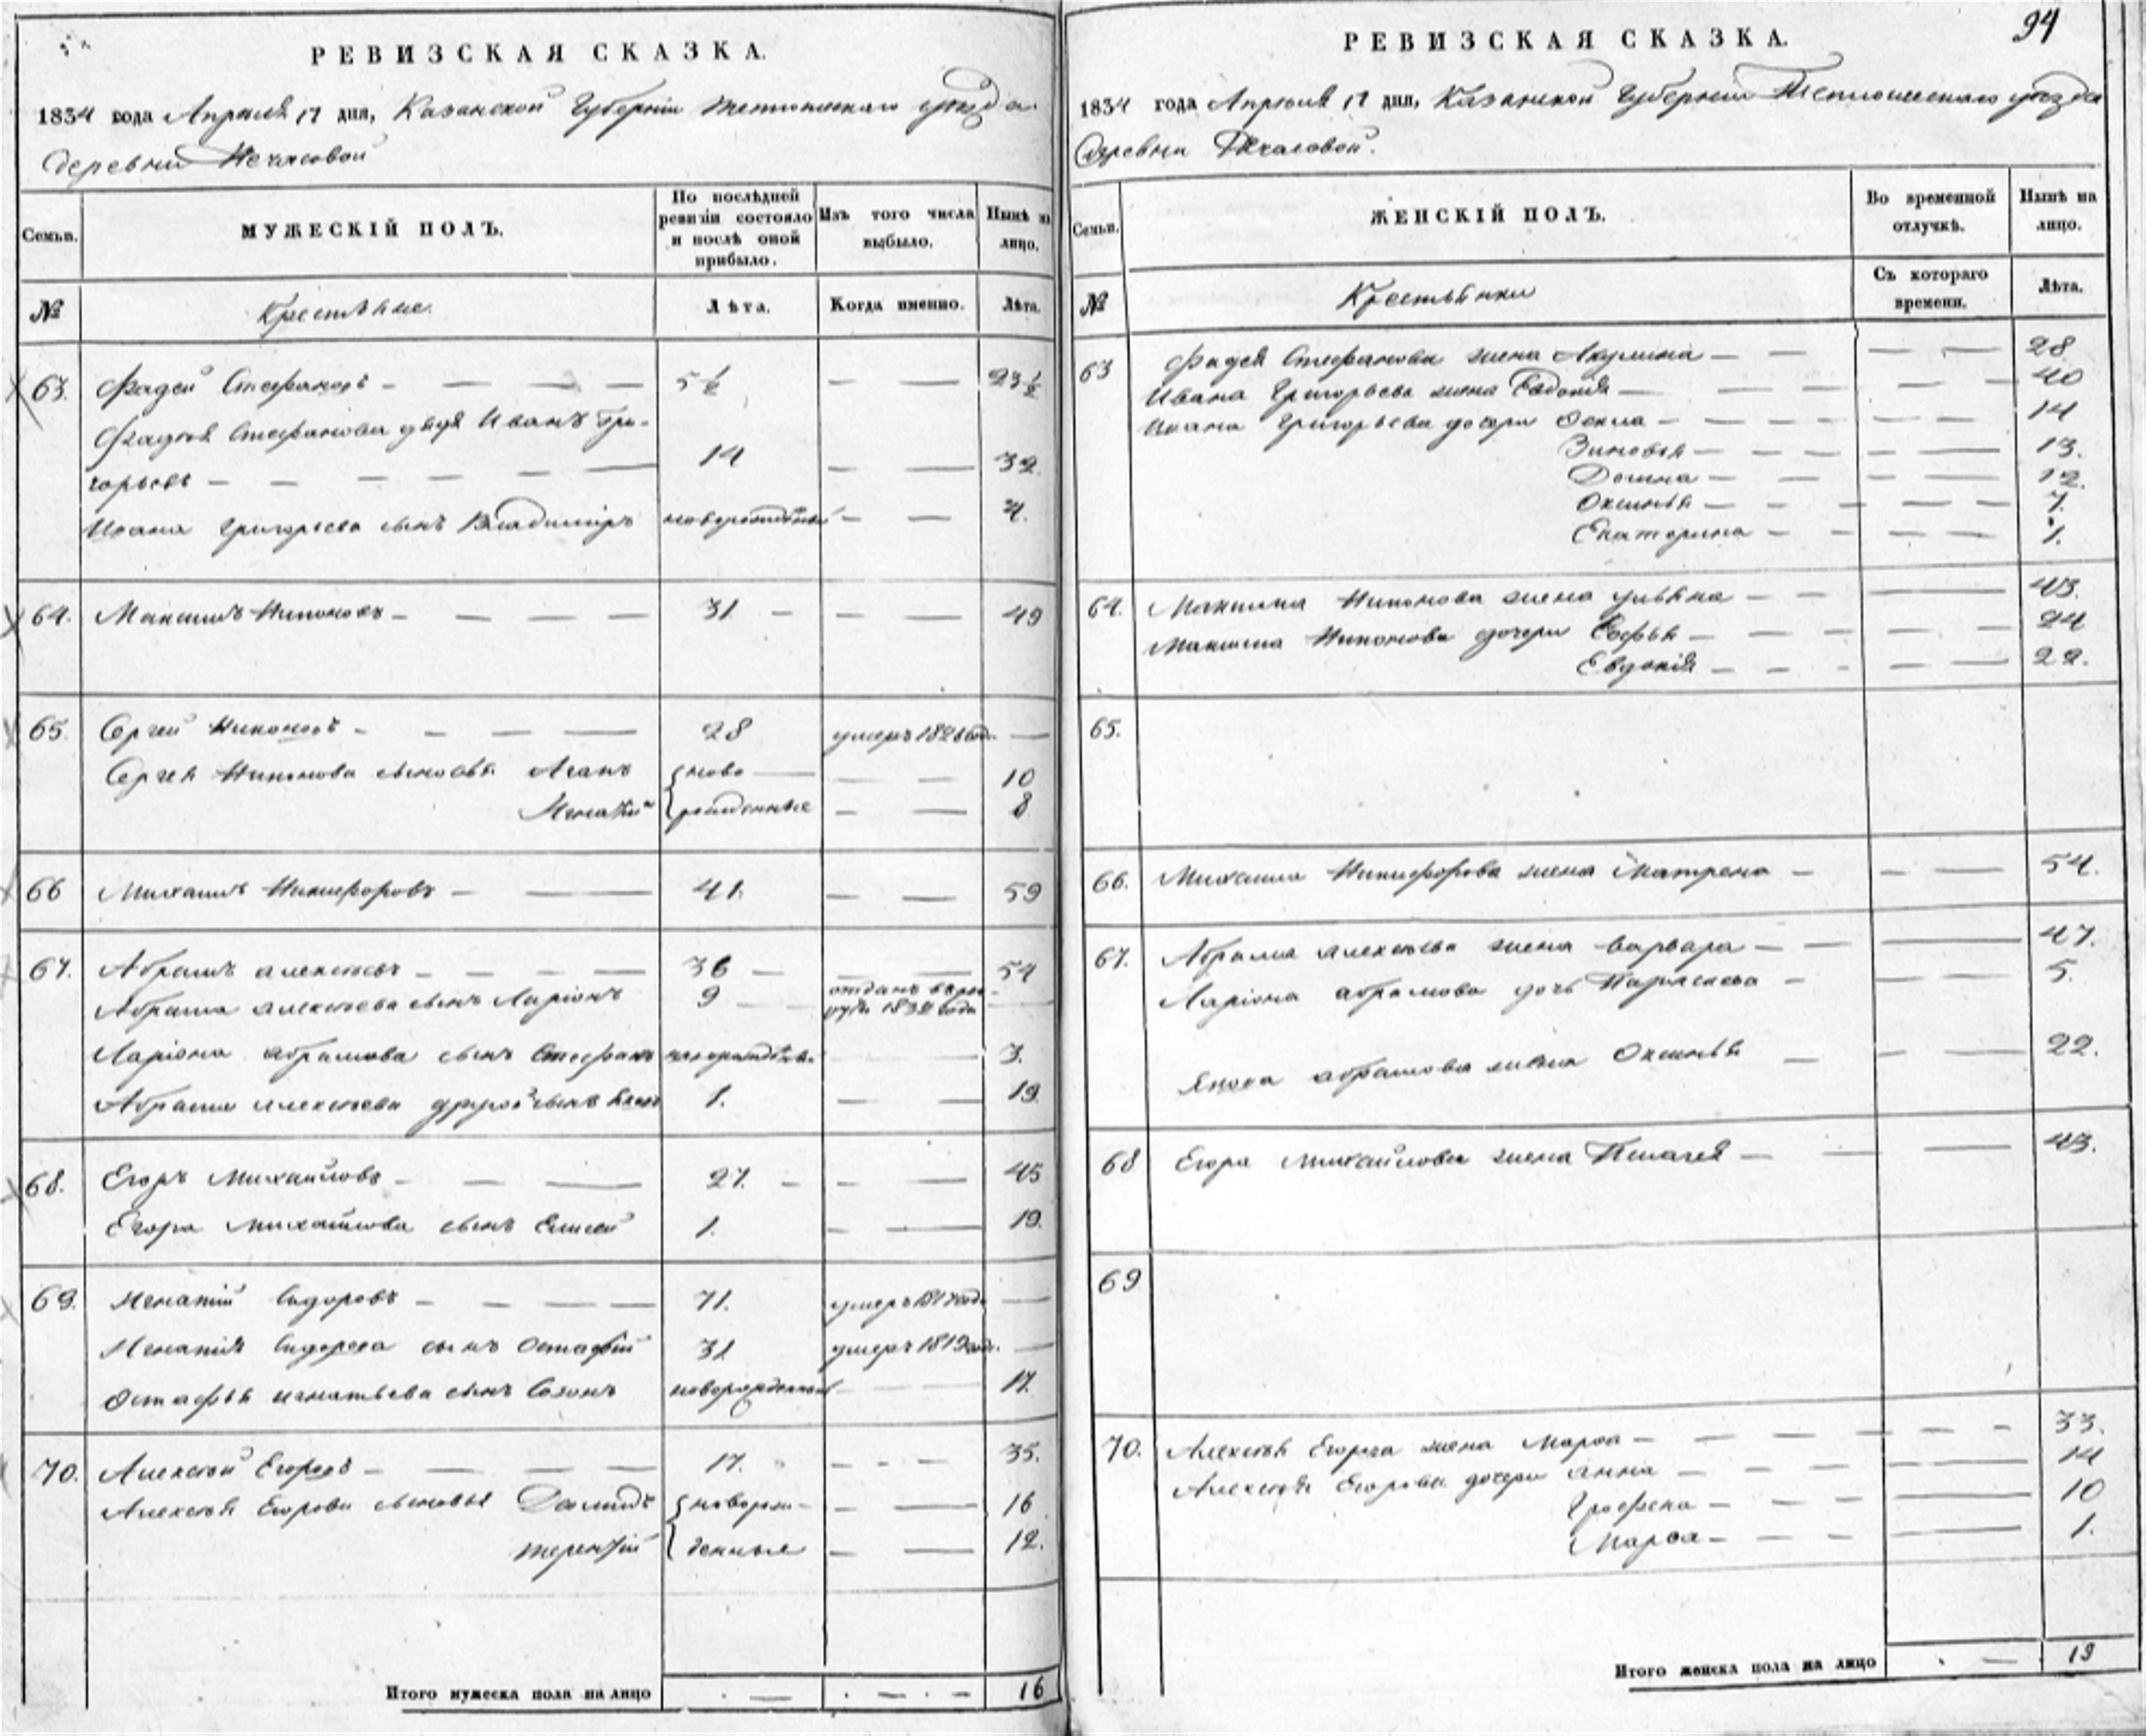 РЕВИЗСКАЯ СКАЗКА.
1834 года Апреля 17 дня, Казанской Губернии Тетюшскаго уезда
деревни Нечасовой
Семьи.
МУЖЕСКІЙ ПОЛЪ.
По послѣдней ревизіи состояло и послѣ оной прибыло.
Изъ того числа выбыло.
Нынѣ на лицо.
№
Крестьяне.
Лѣта.
Когда именно.
Лѣта.
63. Фадей Стефановъ - 5½ 23½
Фадея Стефанова дядя Иванъ Гри-
горьевъ - 14 32
Ивана Григорьева сынъ Владимиръ новорожденный 4.
64. Максимъ Никоновъ - 31 49
65. Сергей Никоновъ - 28 умеръ 1826 год.
Сергея Никонова сыновья Агапъ ново 10
Игнатій рожденные 8
66 Михаилъ Никифоровъ - 41. 59
67. Абрамъ алексеевъ - 36 54
Абрама алексеева сынъ Ларіонъ 9 отданъ в рек-
руты 1832 года
Ларіона абрамова сынъ Стефанъ новорожденный 3.
Абрама алексеева другой сынъ Яковъ 1. 19
68. Егоръ Михайловъ - 27. 45
Егора Михайлова сынъ Елисей 1. 19.
69. Игнатій Сидоровъ - 71. умеръ 1817 год.
Игнатія Сидорова сынъ Остафій 31 умеръ 1819 год.
Остафья игнатьева сынъ Созонъ новорожденный 17.
70. Алексей Егоровъ - 17. 35.
Алексея Егорова сыновья Давидъ новорож- 16
терентій денные 12.
Итого мужеска пола на лицо 16
94
РЕВИЗСКАЯ СКАЗКА.
1834 года Апреля 17 дня, Казанской Губернии Тетюшскаго уезда
деревни Нечасовой.
Семьи.
ЖЕНСКІЙ ПОЛЪ.
Во временной отлучкѣ.
Нынѣ на лицо.
№
Крестьянки
Съ котораго времени.
Лѣта.
63 Фадея Стефанова жена Акулина - 28
Ивана Григорьева жена Евдокія - 40
Ивана Григорьева дочери Фекла - 14
Зиновья - 13.
Домна - 12.
Оксинья - 7.
Екатерина - 1.
64. Максима Никонова жена ульяна - 43.
Максима Никонова дочери Софья - 24
Евдокія - 22.
65.
66. Михаила Никифорова жена Матрена - 54.
67. Абрама алексеева жена варвара - 47.
Ларіона абрамова дочь Параскева - 5.
Якова абрамова жена Оксинья - 22.
68 Егора михайлова жена Пелагея - 43.
69
70. Алексея Егорова жена Марфа - 33.
Алексея Егорова дочери анна - 14
Графена - 10
Марфа - 1.
Итого женска пола на лицо 19